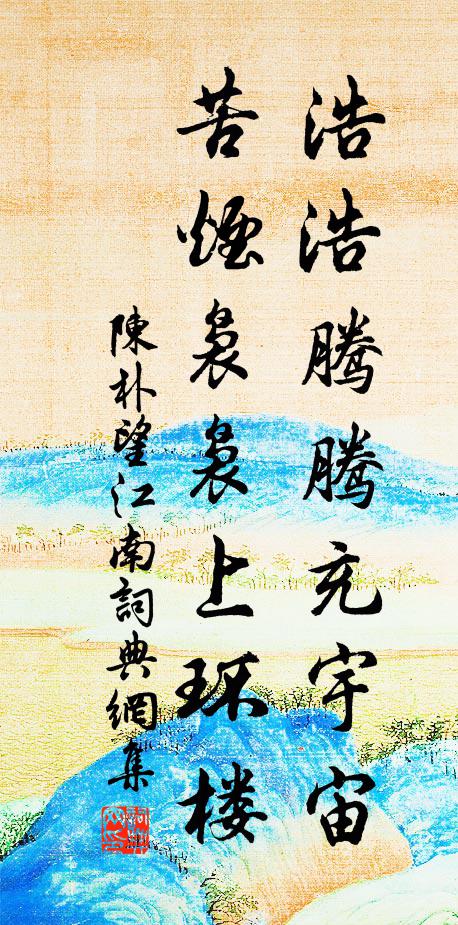 浩浩腾腾充宇宙
苦烟袅袅上环楼
陳朴望江南詞典網集